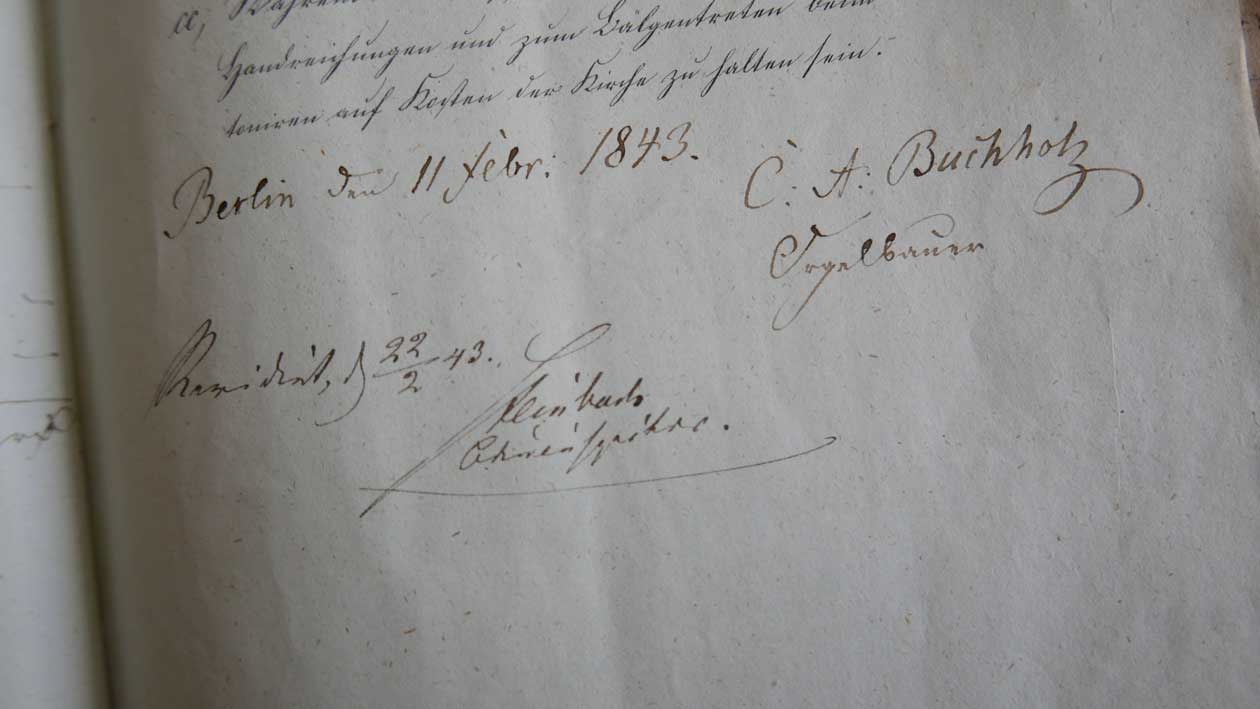 cc, Während
Handreichungen und zum Bälgentreten beim
toniren auf Kosten der Kirche zu halten sein.
Berlin den 11 Febr: 1843.
C: A: Buchholz
Orgelbauer
Revidirt, d 22/2 43.